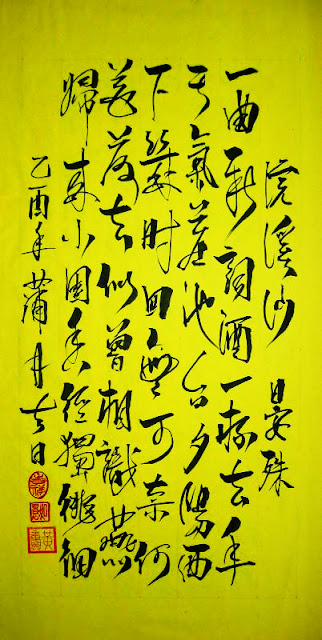 浣溪沙 晏殊
一曲新詞酒一杯去年
天氣舊池台夕陽西
下幾時回無可奈何
花落去似曾相識燕
歸來小園香徑獨徘徊
乙酉年蒲月吉日